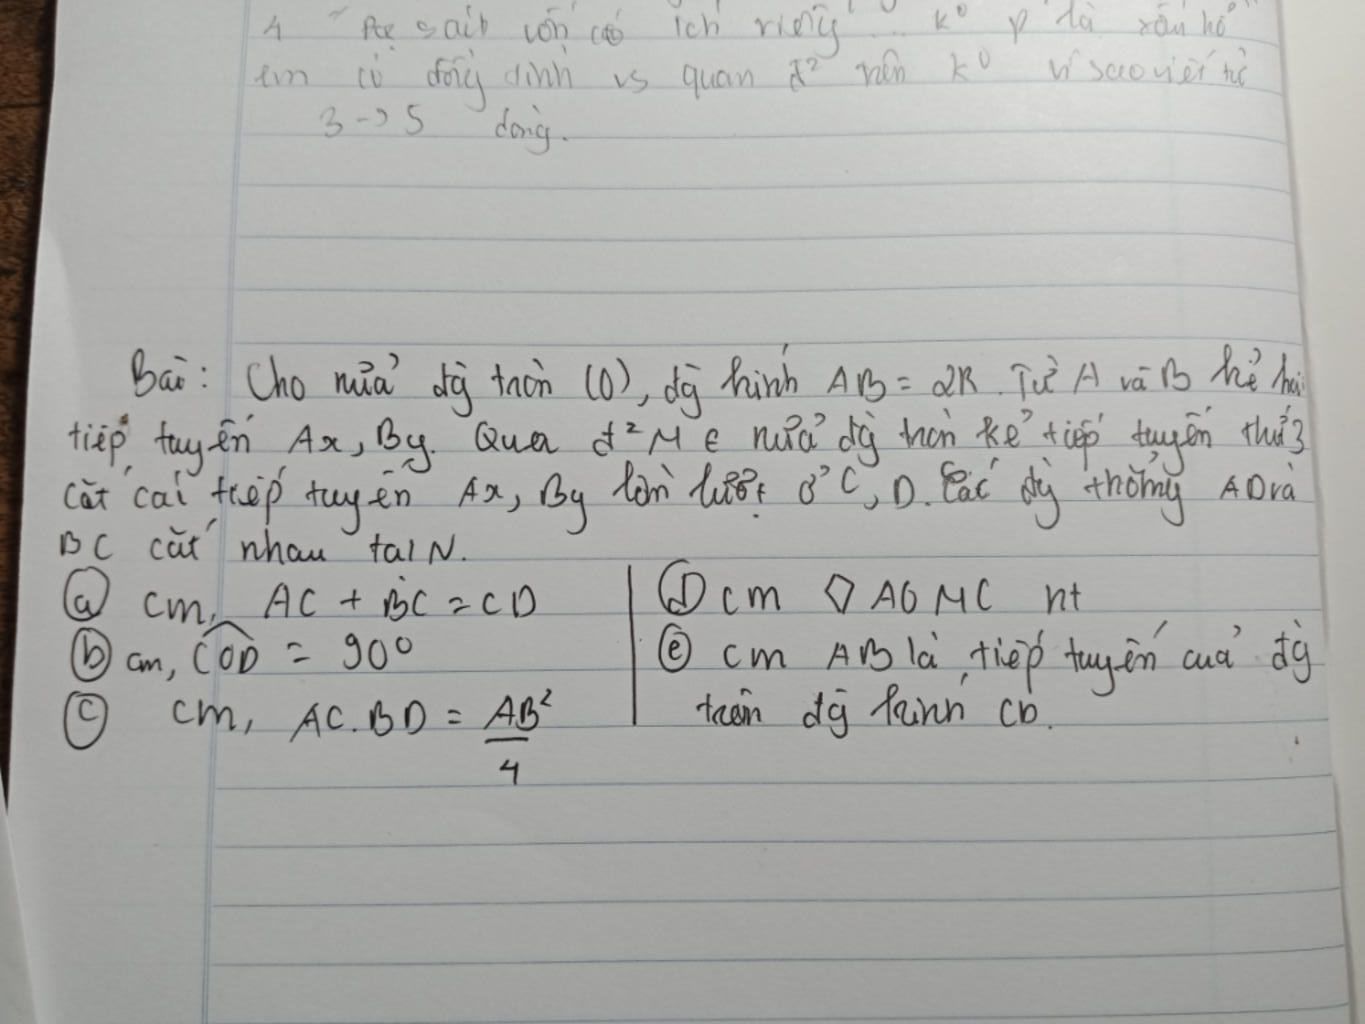 4 " sai vốn có ích riêng " .. k⁰ p là xấu hổ "
em có đồng tình vs quan đ² trên k⁰ vì sao viết từ
3 -> 5 dòng.
Bài: Cho nửa đg tròn (O), đg kính AB = 2R. Từ A và B kẻ hai
tiếp tuyến Ax, By. Qua đ² M ∈ nửa đg tròn kẻ tiếp tuyến thứ 3
cắt các tiếp tuyến Ax, By lần lượt ở C, D. Các đg thẳng AD và
BC cắt nhau tại N.
ⓐ cm, AC + BC = CD
ⓑ cm, \widehat{COD} = 90⁰
ⓒ cm, AC.BD = \frac{AB²}{4}
ⓓ cm ◇ AOMC nt
ⓔ cm AB là tiếp tuyến của đg
tròn đg kính CD.